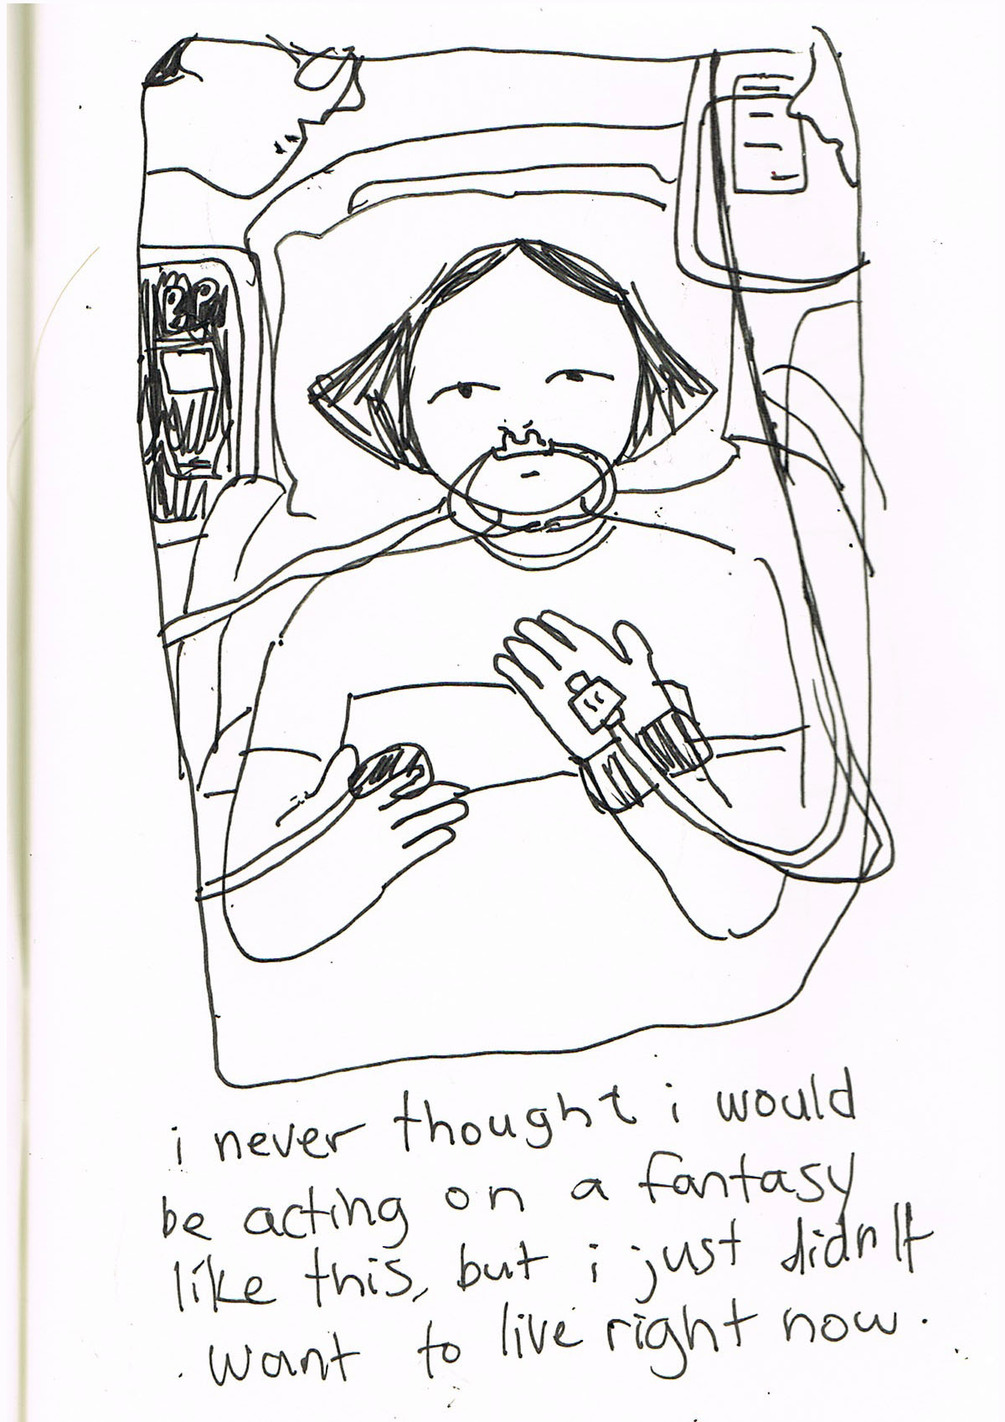 i never thought i would
be acting on a fantasy
like this, but i just didn't
want to live right now.